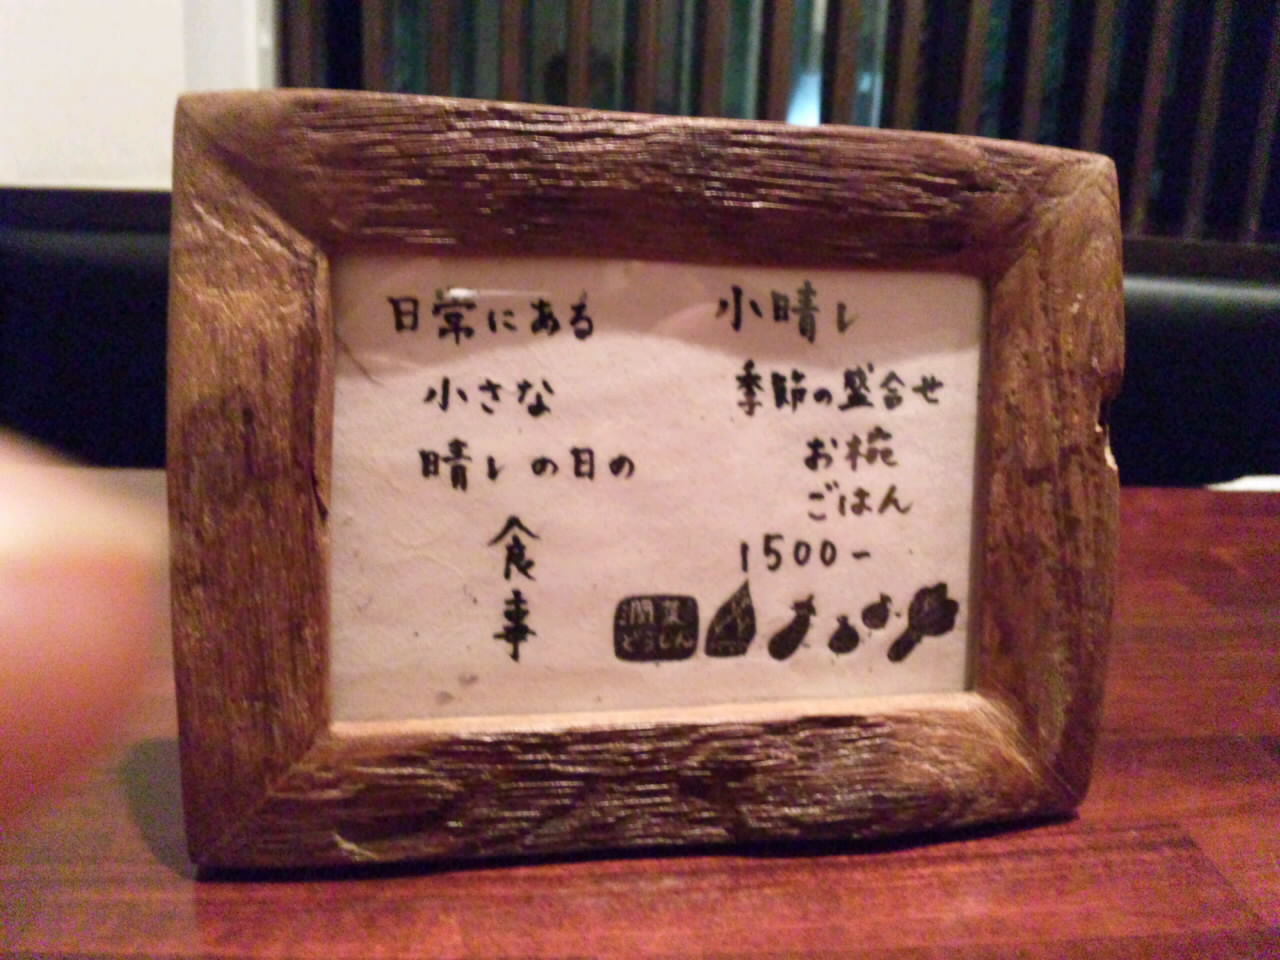 日常にある
小さな
晴レの日の
食事
小晴レ
季節の盛合せ
お椀
ごはん
1500-
潤菜
どうしん